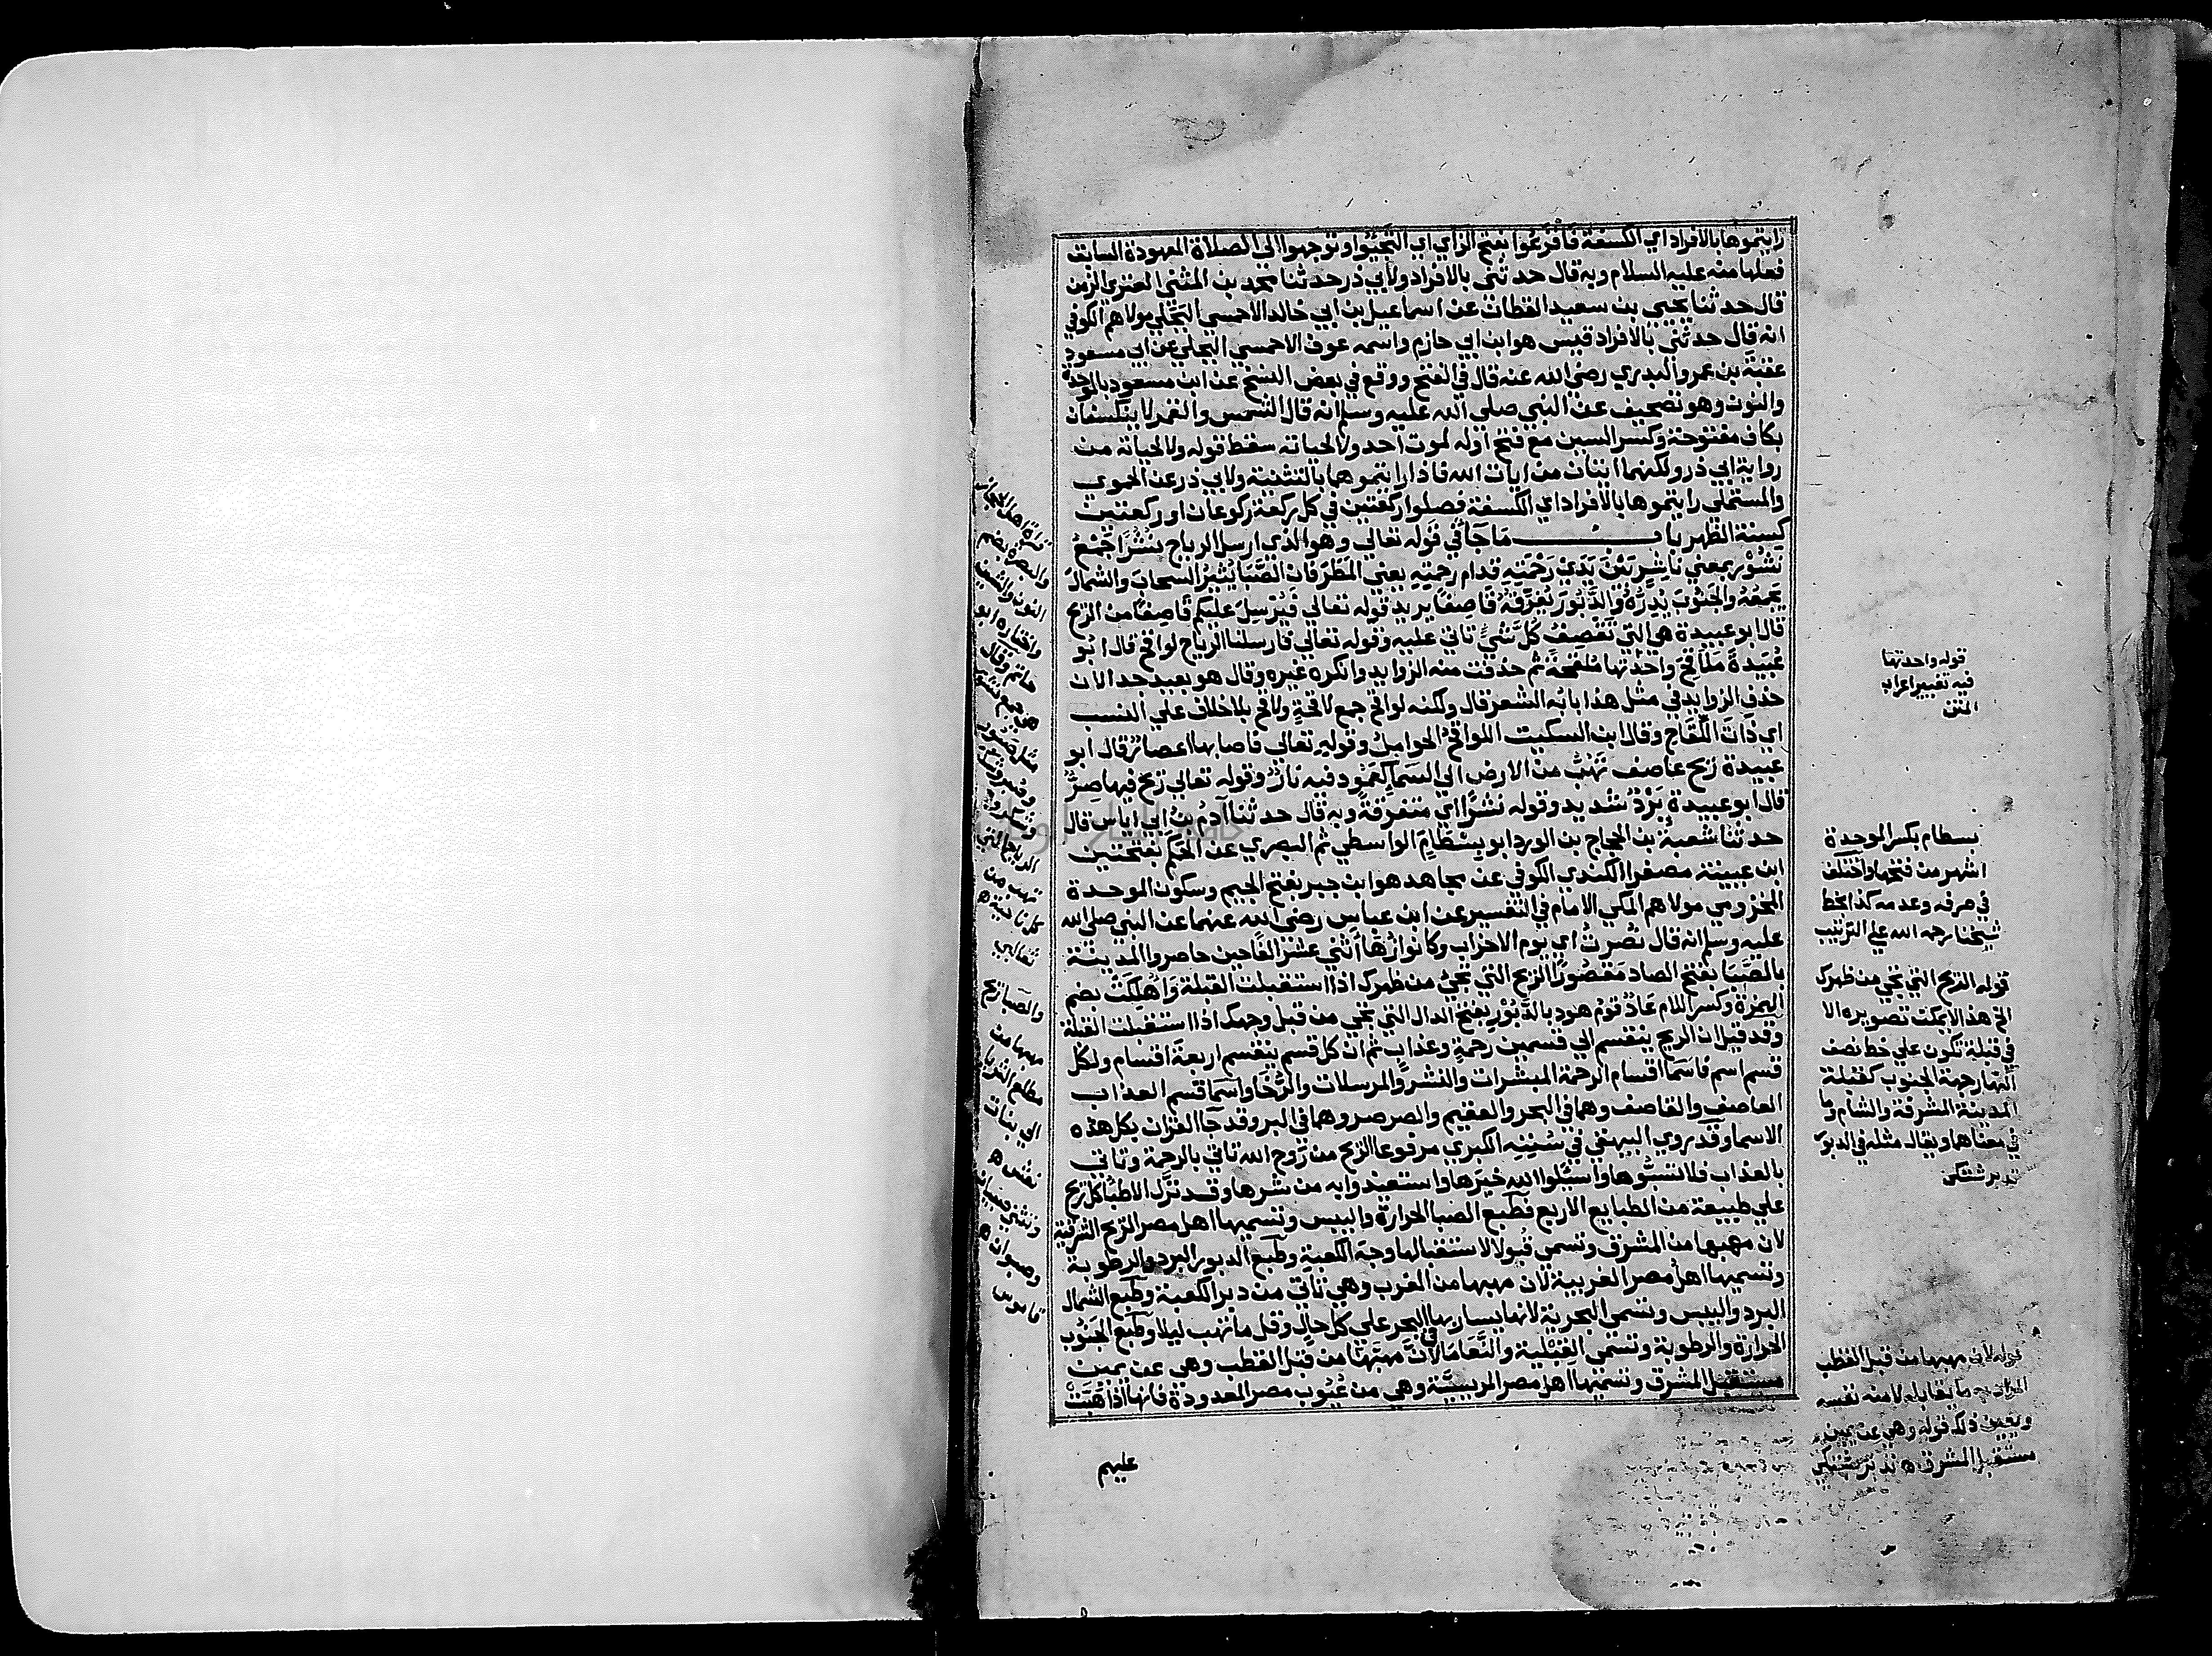 رايتموها بالافراد اي الكسفة فافزعوا بفتح الزاي اي التجئوا وتوجهوا الي الصلاة المعهودة السابق
فعلها منه عليه السلام وبه قال حدثني بالافراد ولابي ذر حدثنا محمد بن المثني العنزي الزمن
قال حدثنا يحيي بن سعيد القطان عن اسماعيل بن ابي خالد الاحمسي البجلي مولاهم الكوفي
انه قال حدثني بالافراد قيس هو ابن ابي حازم واسمه عوف الاحمسي البجلي عن ابي مسعود
عقبة بن عمرو البدري رضي الله عنه قال في الفتح ووقع في بعض النسخ عن ابن مسعود بالموحدة
والنون وهو تصحيف عن النبي صلي الله عليه وسلم انه قال الشمس والقمر لا ينكسفان
بكاف مفتوحة وكسر السين مع فتح اوله لموت احد ولا لحياته سقط قوله ولا لحياته من
رواية ابي ذر ولكنهما ايتان من ايات الله فاذا رايتموها بالتثنية ولابي ذر عن الحموي
والمستملي رايتموها بالافراد اي الكسفة فصلوا ركعتين في كل ركعة ركوعان او ركعتين
كسنة الظهر باب ما جا في قوله تعالي وهو الذي ارسل الرياح بنشرا جمع
نشور بمعني ناشر بين يدي رحمته قدام رحمته يعني المطر فان الصبا يثير السحاب والشمال
يجمعه والجنوب يدره والدبور يفرقه قاصفا يريد قوله تعالي فيرسل عليكم قاصفا من الريح
قال ابو عبيدة هي التي تقصف كل شي تاتي عليه وقوله تعالي فارسلنا الرياح لواقح قال ابو
عبيدة ملاقح واحدتها ملقحة ثم حذفت منه الزوايد وانكره غيره وقال هو بعيد جدا لان
حذف الزوايد في مثل هذا بابه الشعر قال ولكنه لواقح جمع لاقحة ولاقح بلا خلاف علي النسب
اي ذات اللقاح وقال ابن السكيت اللواقح الحوامل وقوله تعالي فاصابها اعصار قال ابو
عبيدة ريح عاصف تهب من الارض الي السما كعمود فيه نار وقوله تعالي ريح فيها صر
قال ابو عبيدة برد شديد وقوله نشرا اي متفرقة وبه قال حدثنا آدم بن ابي اياس قال
حدثنا شعبة بن الحجاج بن الورد ابو بسطام الواسطي ثم البصري عن الحكم بفتحتين
ابن عيينة مصغرا الكندي الكوفي عن مجاهد هو ابن جبر بفتح الجيم وسكون الموحدة
المخزومي مولاهم المكي الامام في التفسير عن ابن عباس رضي الله عنهما عن النبي صلي الله
عليه وسلم انه قال نصرت اي يوم الاحزاب وكانوا زهآ اثني عشر الفا حين حاصروا المدينة
بالصبا بفتح الصاد مقصورا الريح التي تجي من ظهرك اذا استقبلت القبلة واهلكت بضم
الهمزة وكسر اللام عاد قوم هود بالدبور بفتح الدال التي تجي من قبل وجهك اذا استقبلت القبلة
وقد قيل ان الريح ينقسم الي قسمين رحمة وعذاب ثم ان كل قسم ينقسم اربعة اقسام ولكل
قسم اسم فاسما اقسام الرحمة المبشرات والنشر والمرسلات والرخا واسما قسم العذاب
العاصف والقاصف وهما في البحر والعقيم والصرصر وهما في البر وقد جآ القران بكل هذه
الاسما وقد روي البيهقي في سننه الكبري مرفوعا الريح من روح الله تاتي بالرحمة وتاتي
بالعذاب فلا تسبوها واسئلوا الله خيرها واستعيذوا به من شرها وقد نزل الاطبا كل ريح
علي طبيعة من الطبايع الاربع فطبع الصبا الحرارة واليبس وتسميها اهل مصر الريح الشرقية
لان مهبها من المشرق وتسمي قبولا لاستقبالها وجه الكعبة وطبع الدبور البرد والرطوبة
وتسميها اهل مصر الغربية لان مهبها من المغرب وهي تاتي من دبر الكعبة وطبع الشمال
البرد واليبس وتسمي البحرية لانها يسار بها في البحر علي كل حال وقل ما تهب ليلا وطبع الجنوب
الحرارة والرطوبة وتسمي القبلية والنعاما لان مهبها من قبل القطب وهي عن يمين
مستقبل المشرق وتسميها اهل مصر المريسية وهي من عيوب مصر المعدودة فانها اذا هبت
عليهم
قوله واحدتها
فيه تغيير اعراب
المتن
بسطام بكسر الموحدة
اشهر من فتحها واختلف
في صرفه وعدمه كذا بخط
شيخنا رحمه الله علي الترتيب
قوله الريح التي تجي من ظهرك
الخ هذا لا يمكن تصويره الا
في قبلة تكون علي خط نصف
النهار جهة الجنوب كقبلة
المدينة المشرفة والشام وما
في معناها ويقال مثله في الدبور
تدبر شتكن
قوله لان مهبها من قبل القطب
المراد به ما يقابله لا منه نفسه
ويعين ذلك قوله وهي عن يمين
مستقبل المشرق ه تدبر شتكن
قراة اهل الحجاز
والبصرة بضم
النون والشين
واختاره ابو
حاتم وقال
هي جمع نشور
مثل صبور
وصبر
وشكور
الرياح التي
تهب من
كل ناحية ه
ثعالبي
والصبا ريح
مهبها من
مطلع الثريا
الي بنات
نعش ه
وتثني صبيان
وصبوان ه
قاموس